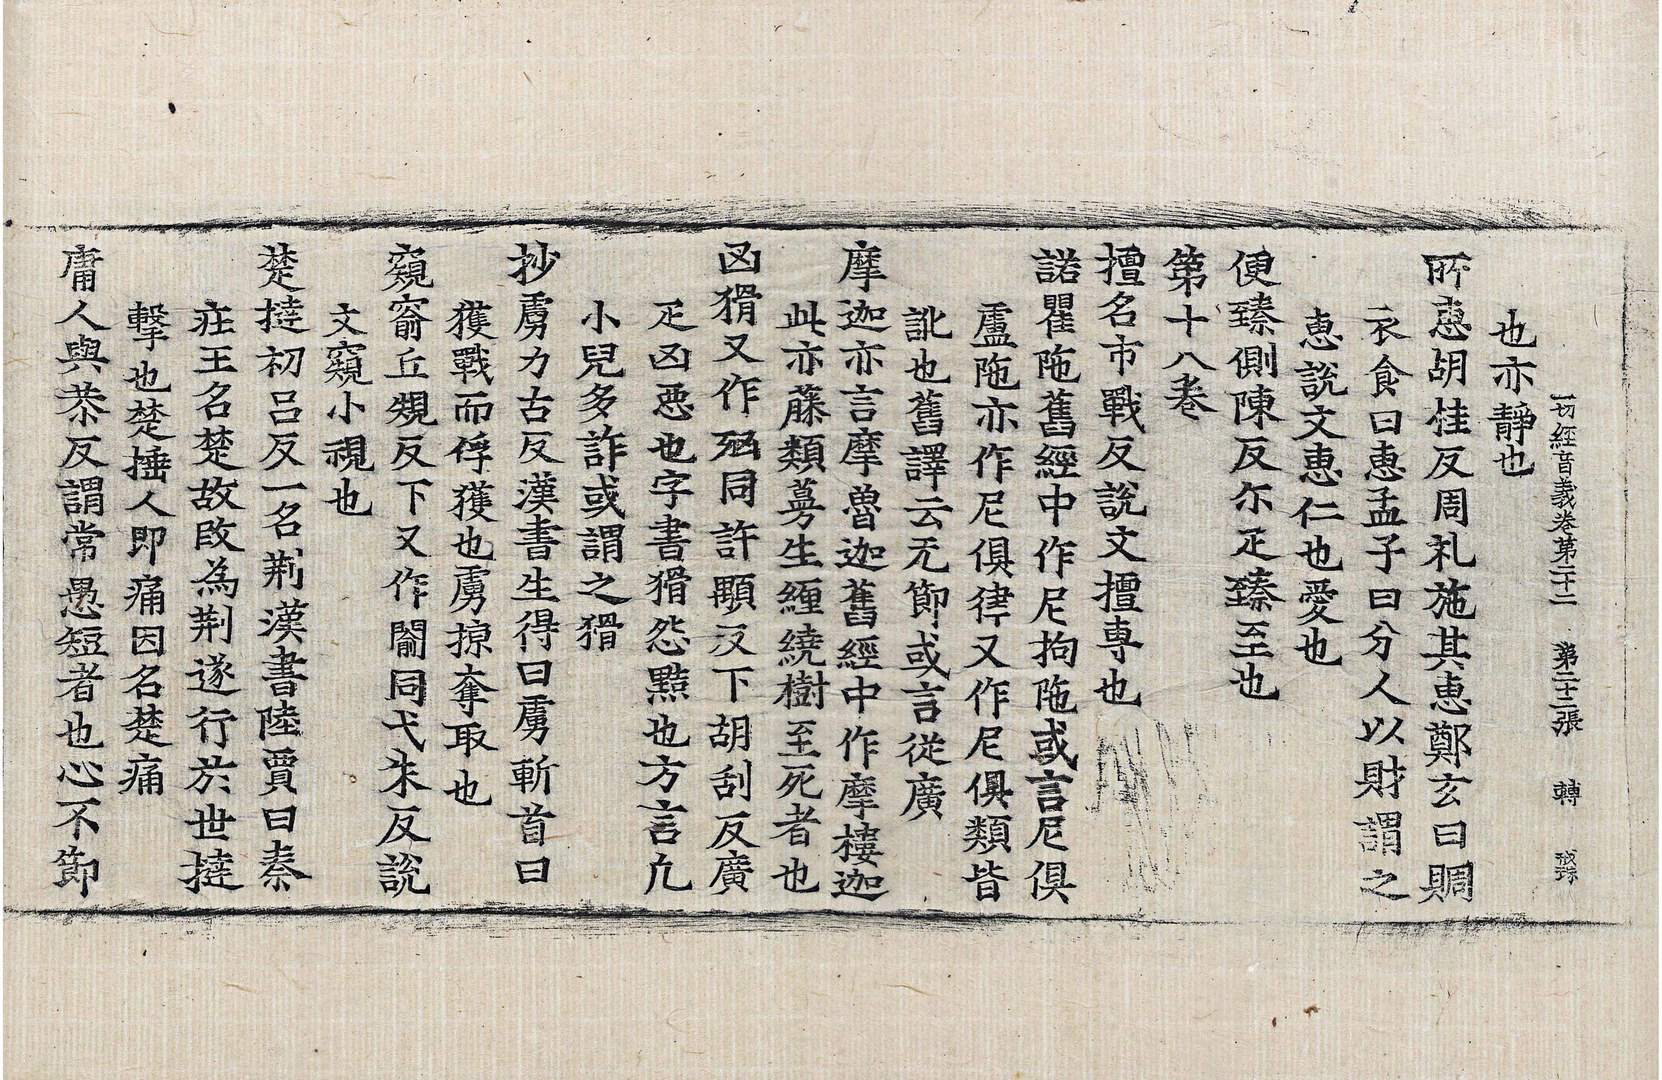 一切經音義卷第二十二 第二十三張 轉
也亦靜也
所惠胡桂反周礼施其惠鄭玄曰賙
衣食曰惠孟子曰分人以財謂之
惠說文惠仁也愛也
便臻側陳反尒疋臻至也
第十八卷
擅名市戰反說文擅專也
諾瞿陁舊經中作尼拘陁或言尼俱
盧陁亦作尼俱律又作尼俱類皆
訛也舊譯云无節或言從廣
摩迦亦言摩魯迦舊經中作摩樓迦
此亦藤類蔓生纏繞樹至死者也
凶猾又作殈同許顒反下胡刮反廣
疋凶惡也字書猾怨黠也方言凢
小兒多詐或謂之猾
抄虜力古反漢書生得曰虜斬首曰
獲戰而俘獲也虜掠奪取也
窺窬丘規反下又作闚同弋朱反說
文窺小視也
楚撻初呂反一名荆漢書陸賈曰秦
莊王名楚故改為荆遂行於世撻
擊也楚捶人即痛因名楚痛
庸人與恭反謂常愚短者也心不節